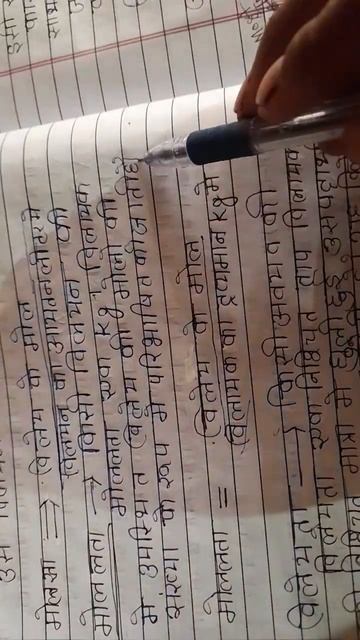 उस
मोलरता ⇒ विलेय के मोल
विलयन का आयतन लीटर में
मोललता → किसी विलयन की
मोललता एक kg विलायक
में उपस्थित विलेय की मोलो की
संख्या के रूप में परिभाषित की जाती है
मोललता = विलेय के मोल
विलायक का द्रव्यमान kg में
विलेयता → किसी अवयव की
विलेयता एक निश्चित ताप विलायक
मात्रा में घुली हुई उस पदार्थ